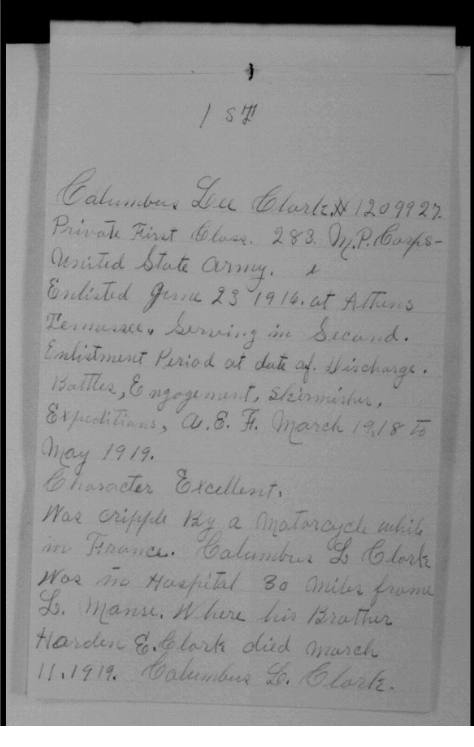 1
1 ST
Columbus Lee Clark. # 1209927.
Private First Class. 283. M.P. Corps-
United State Army.
Enlisted June 23 1916. at Athens
Tennessee. Serving in Second.
Enlistment Period at date of. Discharge.
Battles, Engagement, Skirmisher,
Expeditions, A. E. F. March 1918 To
May 1919.
Character Excellent.
Was cripple By a Motorcycle while
in France. Columbus L Clark
Was in Hospital 30 Miles frome
L. Manse. Where his Brother
Harden E. Clark died March
11. 1919. Columbus L. Clark.